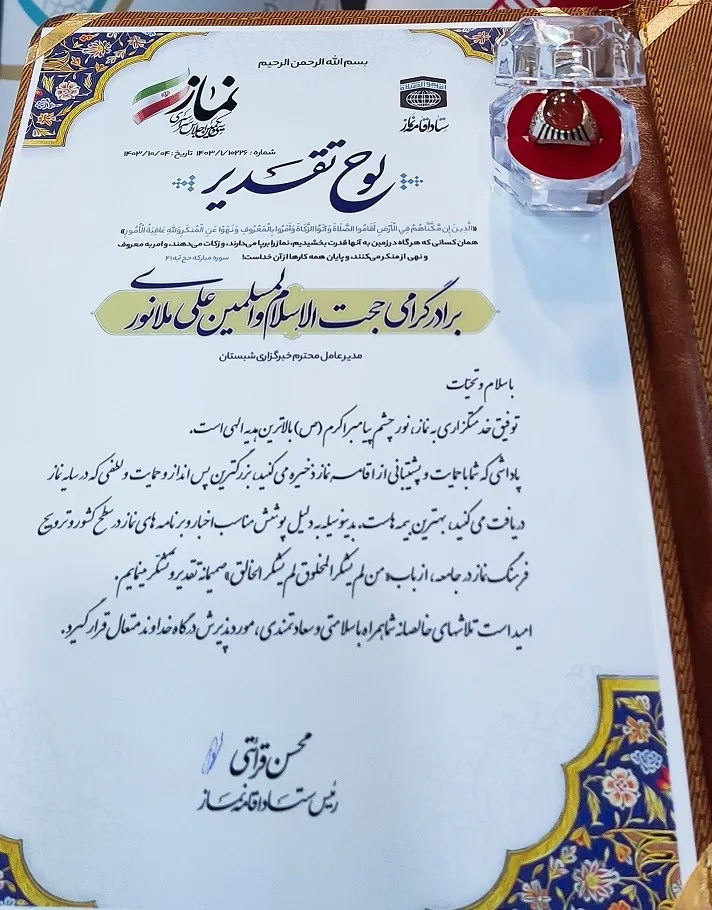 بسم الله الرحمن الرحیم
نماز
ستاد اقامه نماز
شماره : ۱۴۰۳/۱/۱۰۲۲۶ تاریخ: ۱۴۰۳/۱۰/۰۴
لوح تقدیر
«الَّذِينَ إِن مَّكَّنَّاهُمْ فِي الْأَرْضِ أَقَامُوا الصَّلَاةَ وَآتَوُا الزَّكَاةَ وَأَمَرُوا بِالْمَعْرُوفِ وَنَهَوْا عَنِ الْمُنكَرِ وَلِلَّهِ عَاقِبَةُ الْأُمُورِ»
همان کسانی که هرگاه در زمین به آنها قدرت بخشیدیم، نماز را برپا می‌دارند، و زکات می‌دهند، و امر به معروف
و نهی از منکر می‌کنند، و پایان همه کارها از آن خداست! سوره مبارکه حج آیه ۴۱
برادر گرامی حجت الاسلام والمسلمین علی ملانوری
مدیرعامل محترم خبرگزاری شبستان
با سلام و تحیات
توفیق خدمتگزاری به نماز، نور چشم پیامبر اکرم (ص) بالاترین هدیه الهی است.
پاداشی که شما با حمایت و پشتیبانی از اقامه نماز ذخیره می‌کنید، بزرگترین پس انداز و حمایت و لطفی که در سایه نماز
دریافت می‌کنید، بهترین بیمه هاست. بدینوسیله به دلیل پوشش مناسب اخبار و برنامه های نماز در سطح کشور و ترویج
فرهنگ نماز در جامعه، از باب «من لم یشکر المخلوق لم یشکر الخالق» صمیمانه تقدیر و تشکر مینمایم.
امید است تلاشهای خالصانه شما همراه با سلامتی و سعادتمندی، مورد پذیرش درگاه خداوند متعال قرار گیرد.
محسن قرائتی
رئیس ستاد اقامه نماز